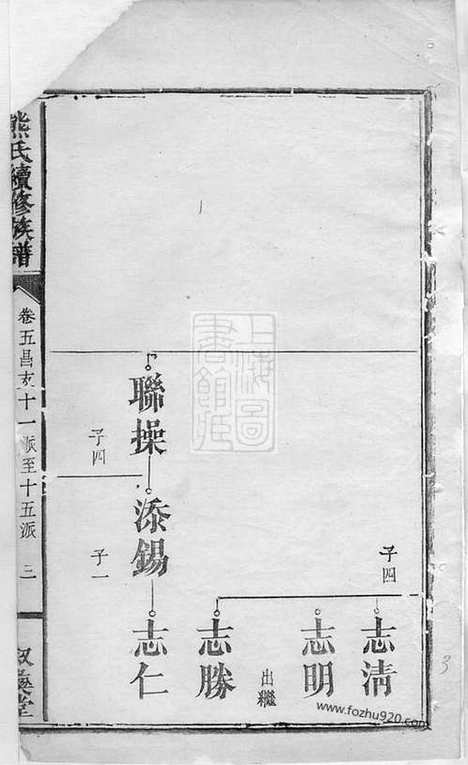 子四
志清
志明
出繼
志勝
聯操
添錫
志仁
子四
子一
熊氏續修族譜
卷五昌支十一派至十五派 三
堂
上海圖書館藏
3
www.fozhu920.com